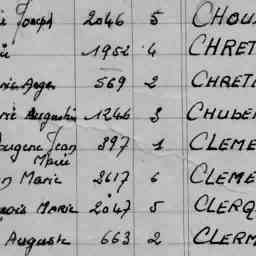 ie Joseph 2046 5 CHOU
1952 4 CHRET
rie Ange 569 2 CHRETI
rie Augustin 1246 3 CHUBE
Eugene Jean Marie 397 1 CLEME
n Marie 2617 6 CLEME
nçois MARIE 2047 5 CLERQ
Auguste 663 2 CLERM